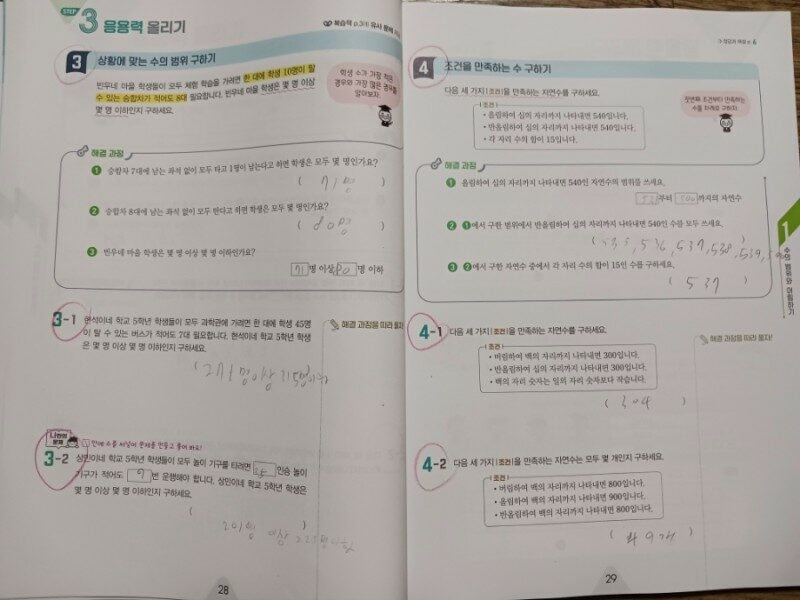 STEP 3 응용력 올리기
복습책 p.31에 유사 문제
3 상황에 맞는 수의 범위 구하기
빈우네 마을 학생들이 모두 체험 학습을 가려면 한 대에 학생 10명이 탈
수 있는 승합차가 적어도 8대 필요합니다. 빈우네 마을 학생은 몇 명 이상
몇 명 이하인지 구하세요.
학생 수가 가장 적은
경우와 가장 많은 경우를
알아보자.
해결 과정
1 승합차 7대에 남는 좌석 없이 모두 타고 1명이 남는다고 하면 학생은 모두 몇 명인가요?
( 71명 )
2 승합차 8대에 남는 좌석 없이 모두 탄다고 하면 학생은 모두 몇 명인가요?
( 80명 )
3 빈우네 마을 학생은 몇 명 이상 몇 명 이하인가요?
71 명 이상 80 명 이하
3-1 현석이네 학교 5학년 학생들이 모두 과학관에 가려면 한 대에 학생 45명
이 탈 수 있는 버스가 적어도 7대 필요합니다. 현석이네 학교 5학년 학생
은 몇 명 이상 몇 명 이하인지 구하세요.
해결 과정을 따라 풀자!
( 271명이상 315명이하
나만의 문제
빈칸에 수를 써넣어 문제를 만들고 풀어 봐요!
3-2 상민이네 학교 5학년 학생들이 모두 놀이 기구를 타려면 25 인승 놀이
기구가 적어도 9 번 운행해야 합니다. 상민이네 학교 5학년 학생은
몇 명 이상 몇 명 이하인지 구하세요.
( )
201명 이상 225명이하
28
정답과 해설 p. 6
4 조건을 만족하는 수 구하기
다음 세 가지 조건을 만족하는 자연수를 구하세요.
조건
• 올림하여 십의 자리까지 나타내면 540입니다.
• 반올림하여 십의 자리까지 나타내면 540입니다.
• 각 자리 수의 합이 15입니다.
첫번째 조건부터 만족하는
수를 차례로 구하자.
해결 과정
1 올림하여 십의 자리까지 나타내면 540인 자연수의 범위를 쓰세요.
531 부터 까지의 자연수
2 1에서 구한 범위에서 반올림하여 십의 자리까지 나타내면 540인 수를 모두 쓰세요.
( 535, 536, 537, 538, 539, )
3 2에서 구한 자연수 중에서 각 자리 수의 합이 15인 수를 구하세요.
( 537 )
1
수의 범위와 어림하기
4-1 다음 세 가지 조건을 만족하는 자연수를 구하세요.
해결 과정을 따라 풀자!
조건
• 버림하여 백의 자리까지 나타내면 300입니다.
• 반올림하여 십의 자리까지 나타내면 300입니다.
• 백의 자리 숫자는 일의 자리 숫자보다 작습니다.
( 304 )
4-2 다음 세 가지 조건을 만족하는 자연수는 모두 몇 개인지 구하세요.
조건
• 버림하여 백의 자리까지 나타내면 800입니다.
• 올림하여 백의 자리까지 나타내면 900입니다.
• 반올림하여 백의 자리까지 나타내면 800입니다.
( 49개 )
29